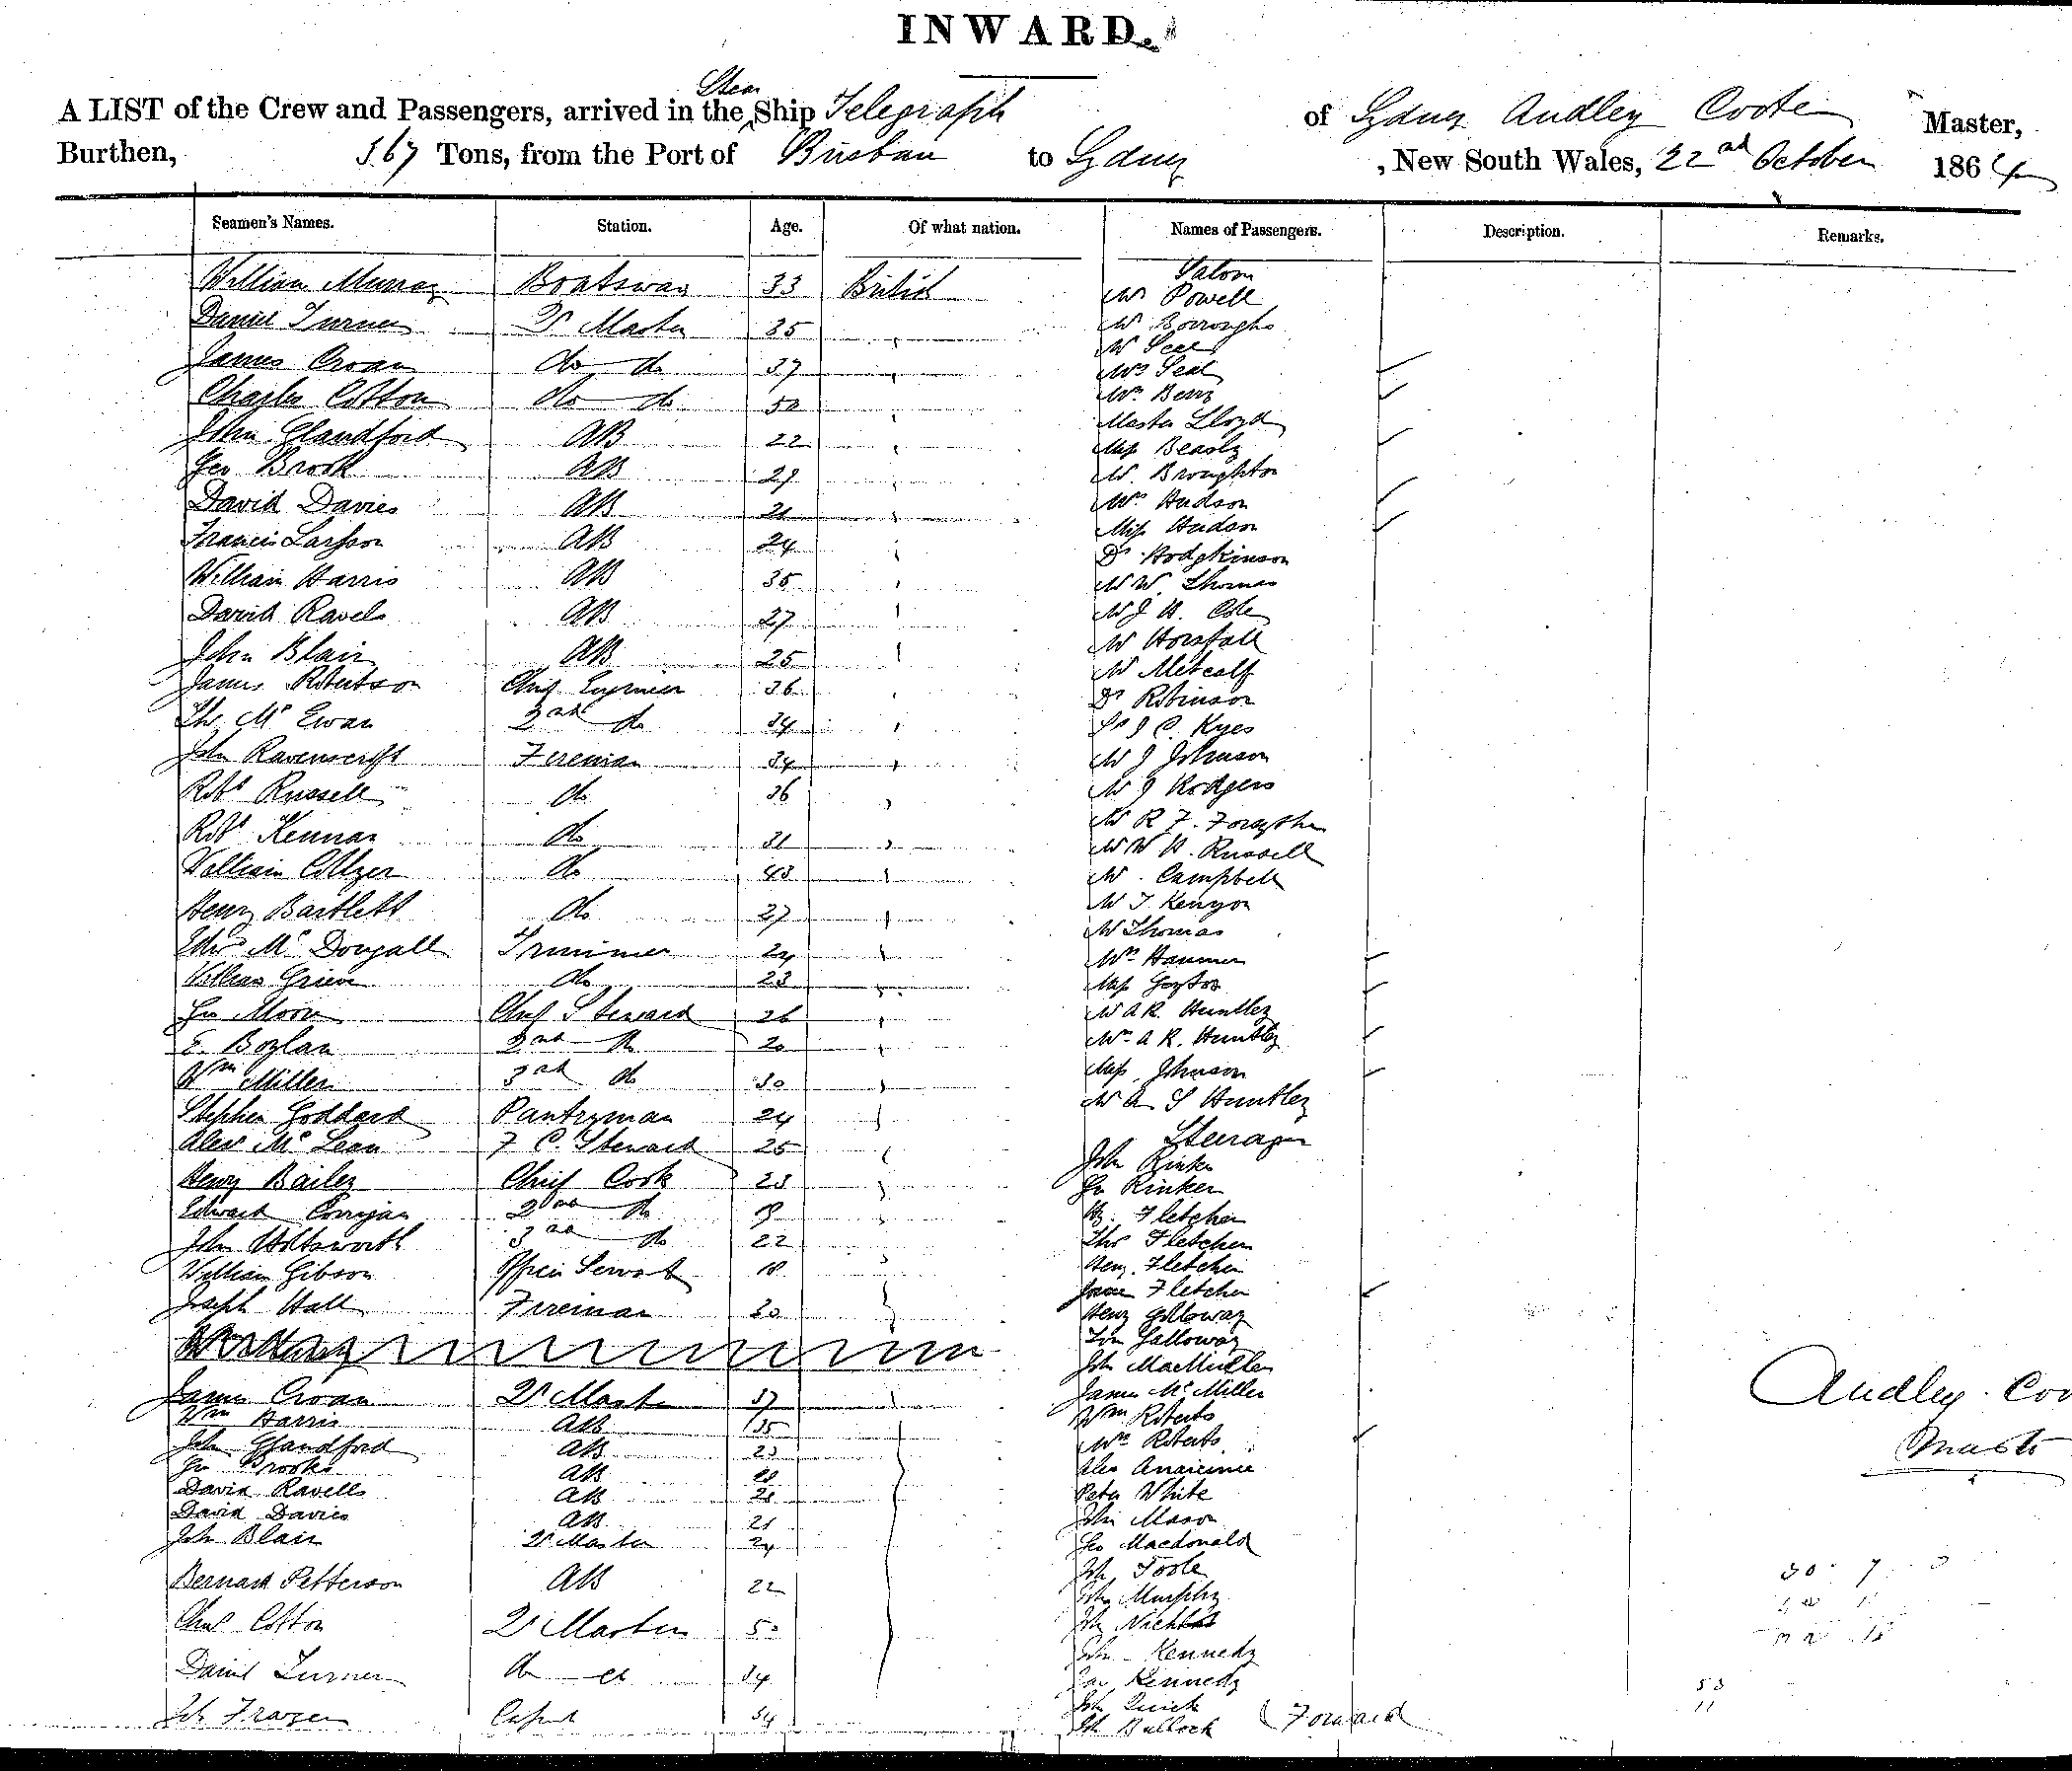 INWARD.
Steam
A LIST of the Crew and Passengers, arrived in the Ship Telegraph of Sydney Audley Coote Master,
Burthen, 567 Tons, from the Port of Brisbane to Sydney, New South Wales, 22nd October 1864
Seamen's Names. Station. Age. Of what nation. Names of Passengers. Description. Remarks.
Saloon
William Murray Boatswain 33 British Mr Powell
Daniel Turner Qr Master 35 Mr Borroughs
Mr Seal
James Croan do do 37 Mrs Seal
Charles Cotton do do 50 Mrs Berry
Master Lloyd
John Glandford AB 22 Miss Beasly
Geo Brook AB 29 Mr Broughton
David Davies AB 21 Mrs Hudson
Miss Hudson
Francis Larsson AB 24 Dr Hodgkinson
William Harris AB 35 Mr W. Thomas
David Ravels AB 27 Mr J H. Cole
Mr Horsfall
John Blair AB 25 Mr Metcalf
James Robertson Chief Engineer 36 Dr Robinson
Thos McEwan 2nd do 34 J C. Kyes
John Ravenscroft Fireman 34 Mr J Johnson
Robt Russell do 36 Mr J Rodgers
Mr R F. Forsythe
Robt Kennan do 31 Mr W H. Russell
William do 43 Mr Campbell
Henry Bartlett do 27 Mr T. Kenyon
Mr Thomas
McDougall Trimmer 24 Mrs Hanmer
William Grieve do 23 Miss
Geo Moore Chief Steward 26 Mr A R. Huntley
E. Boylan 2nd do 20 Mrs A R. Huntley
Wm Miller 3rd do 30 Miss Johnson
Stephen Goddard Pantryman 24 Mr A S Huntley
Steerage
Alexr McLean F C. Steward 25 John Rinker
Henry Bailey Chief Cook 23 Geo Rinker
Edward Corrigan 2nd do 19 Fletcher
John Holtsworth 3rd do 22 Thos Fletcher
William Gibson Officers Servant 18 Henry Fletcher
Fletcher
Joseph Hall Fireman 30 Henry Golloway
Galloway
John MacMullen
James Croan Qr Master 37 James McMiller
Wm Harris AB 35 Wm Roberts
John Glandford AB 23 Mrs Roberts
Geo Brooks AB 28 Alex
David Ravells AB 28 Peter White
David Davies AB 21 John Mason
John Blair Qr Master 24 Geo Macdonald
John Toole
Bernard Petterson AB 22 John Murphy
Chas Cotton Qr Master 50 John Nicholas
John Kennedy
Daniel Turner do do 34 Jas Kennedy
Jno Frazer 34 John Quick
John Bullock (Forward
Audley Coo
Master
30 7 0
53
11